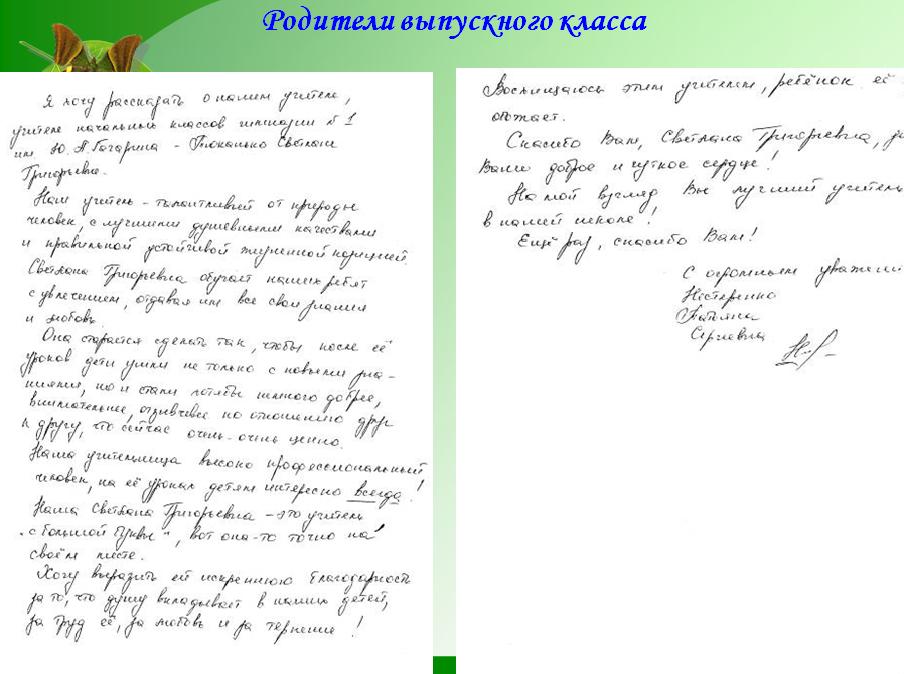 Родители выпускного класса
Я хочу рассказать о нашем учителе,
учителе начальных классов гимназии № 1
им. Ю. А Гагарина - Светлане
Григорьевне.
Наш учитель - талантливый от природы
человек, с лучшими душевными качествами
и правильной устойчивой жизненной позицией.
Светлана Григорьевна обучает наших ребят
с увлечением, отдавая им все свои знания
и любовь.
Она старается сделать так, чтобы после её
уроков дети ушли не только с новыми зна-
ниями, но и стали хотябы немного добрее,
внимательнее, отзывчивее по отношению друг
к другу, что сейчас очень-очень ценно.
Наша учительница высоко профессиональный
человек, на её уроках детям интересно всегда!
Наша Светлана Григорьевна - это учитель
"с большой буквы", вот она-то точно на
своём месте.
Хочу выразить ей искреннюю благодарность
за то, что душу вкладывает в наших детей,
за труд её, за любовь и за терпение!
Восхищаюсь этим учителем, ребёнок её
обожает.
Спасибо Вам, Светлана Григорьевна, за
Ваше доброе и чуткое сердце!
На мой взгляд Вы лучший учитель
в нашей школе!
Ещё раз, спасибо Вам!
С огромным уважени
Нестеренко
Татьяна
Сергеевна